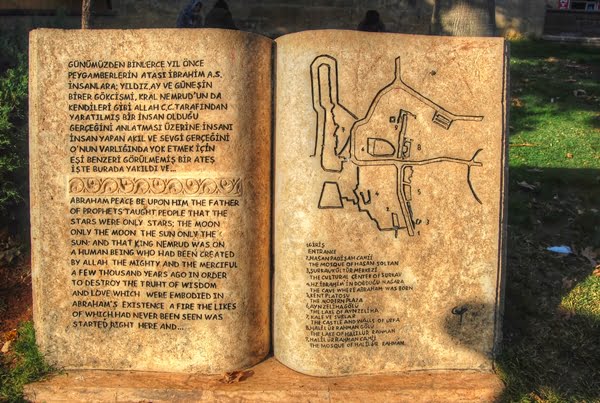 GÜNÜMÜZDEN BİNLERCE YIL ÖNCE
PEYGAMBERLERİN ATASI İBRAHİM A.S.
İNSANLARA; YILDIZ, AY VE GÜNEŞİN
BİRER GÖKCİSMİ, KRAL NEMRUD'UN DA
KENDİLERİ GİBİ ALLAH C.C. TARAFINDAN
YARATILMIŞ BİR İNSAN OLDUĞU
GERÇEĞİNİ ANLATMASI ÜZERİNE İNSANI
İNSAN YAPAN AKIL VE SEVGİ GERÇEĞİNİ
O'NUN VARLIĞINDA YOK ETMEK İÇİN
EŞİ BENZERİ GÖRÜLMEMİŞ BİR ATEŞ
İŞTE BURADA YAKILDI VE...
ABRAHAM PEACE BE UPON HIM THE FATHER
OF PROPHETS TAUGHT PEOPLE THAT THE
STARS WERE ONLY STARS; THE MOON
ONLY THE MOON. THE SUN ONLY THE
SUN: AND THAT KING NEMRUD WAS ON
A HUMAN BEING WHO HAD BEEN CREATED
BY ALLAH THE MIGHTY AND THE MERCIFUL
A FEW THOUSAND YEARS AGO IN ORDER
TO DESTROY THE TRUHT OF WISDOM
AND LOVE WHICH WERE EMBODIED IN
ABRAHAM'S EXISTENCE A FIRE THE LIKES
OF WHICH HAD NEVER BEEN SEEN WAS
STARTED RIGHT HERE AND...
1.GİRİŞ
ENTRANCE
2.HASAN PADİŞAH CAMİİ
THE MOSQUE OF HASAN SOLTAN
3.ŞURKAV KÜLTÜR MERKEZİ
THE CULTURAL CENTER OF ŞURKAV
4.HZ. İBRAHİM'İN DOĞDUĞU MAĞARA
THE CAVE WHERE ABRAHAM WAS BORN
5.KENT PLATOSU
THE MODERN PLATA
6.AYNZELİHA GÖLÜ
THE LAKE OF AYNZELİHA
7.KALE VE SURLAR
THE CASTLE AND WALLS OF URFA
8.HALİL ÜR RAHMAN GÖLÜ
THE LAKE OF HALİL ÜR RAHMAN
9.HALİL ÜR RAHMAN CAMİİ
THE MOSQUE OF HALİL ÜR RAHMAN